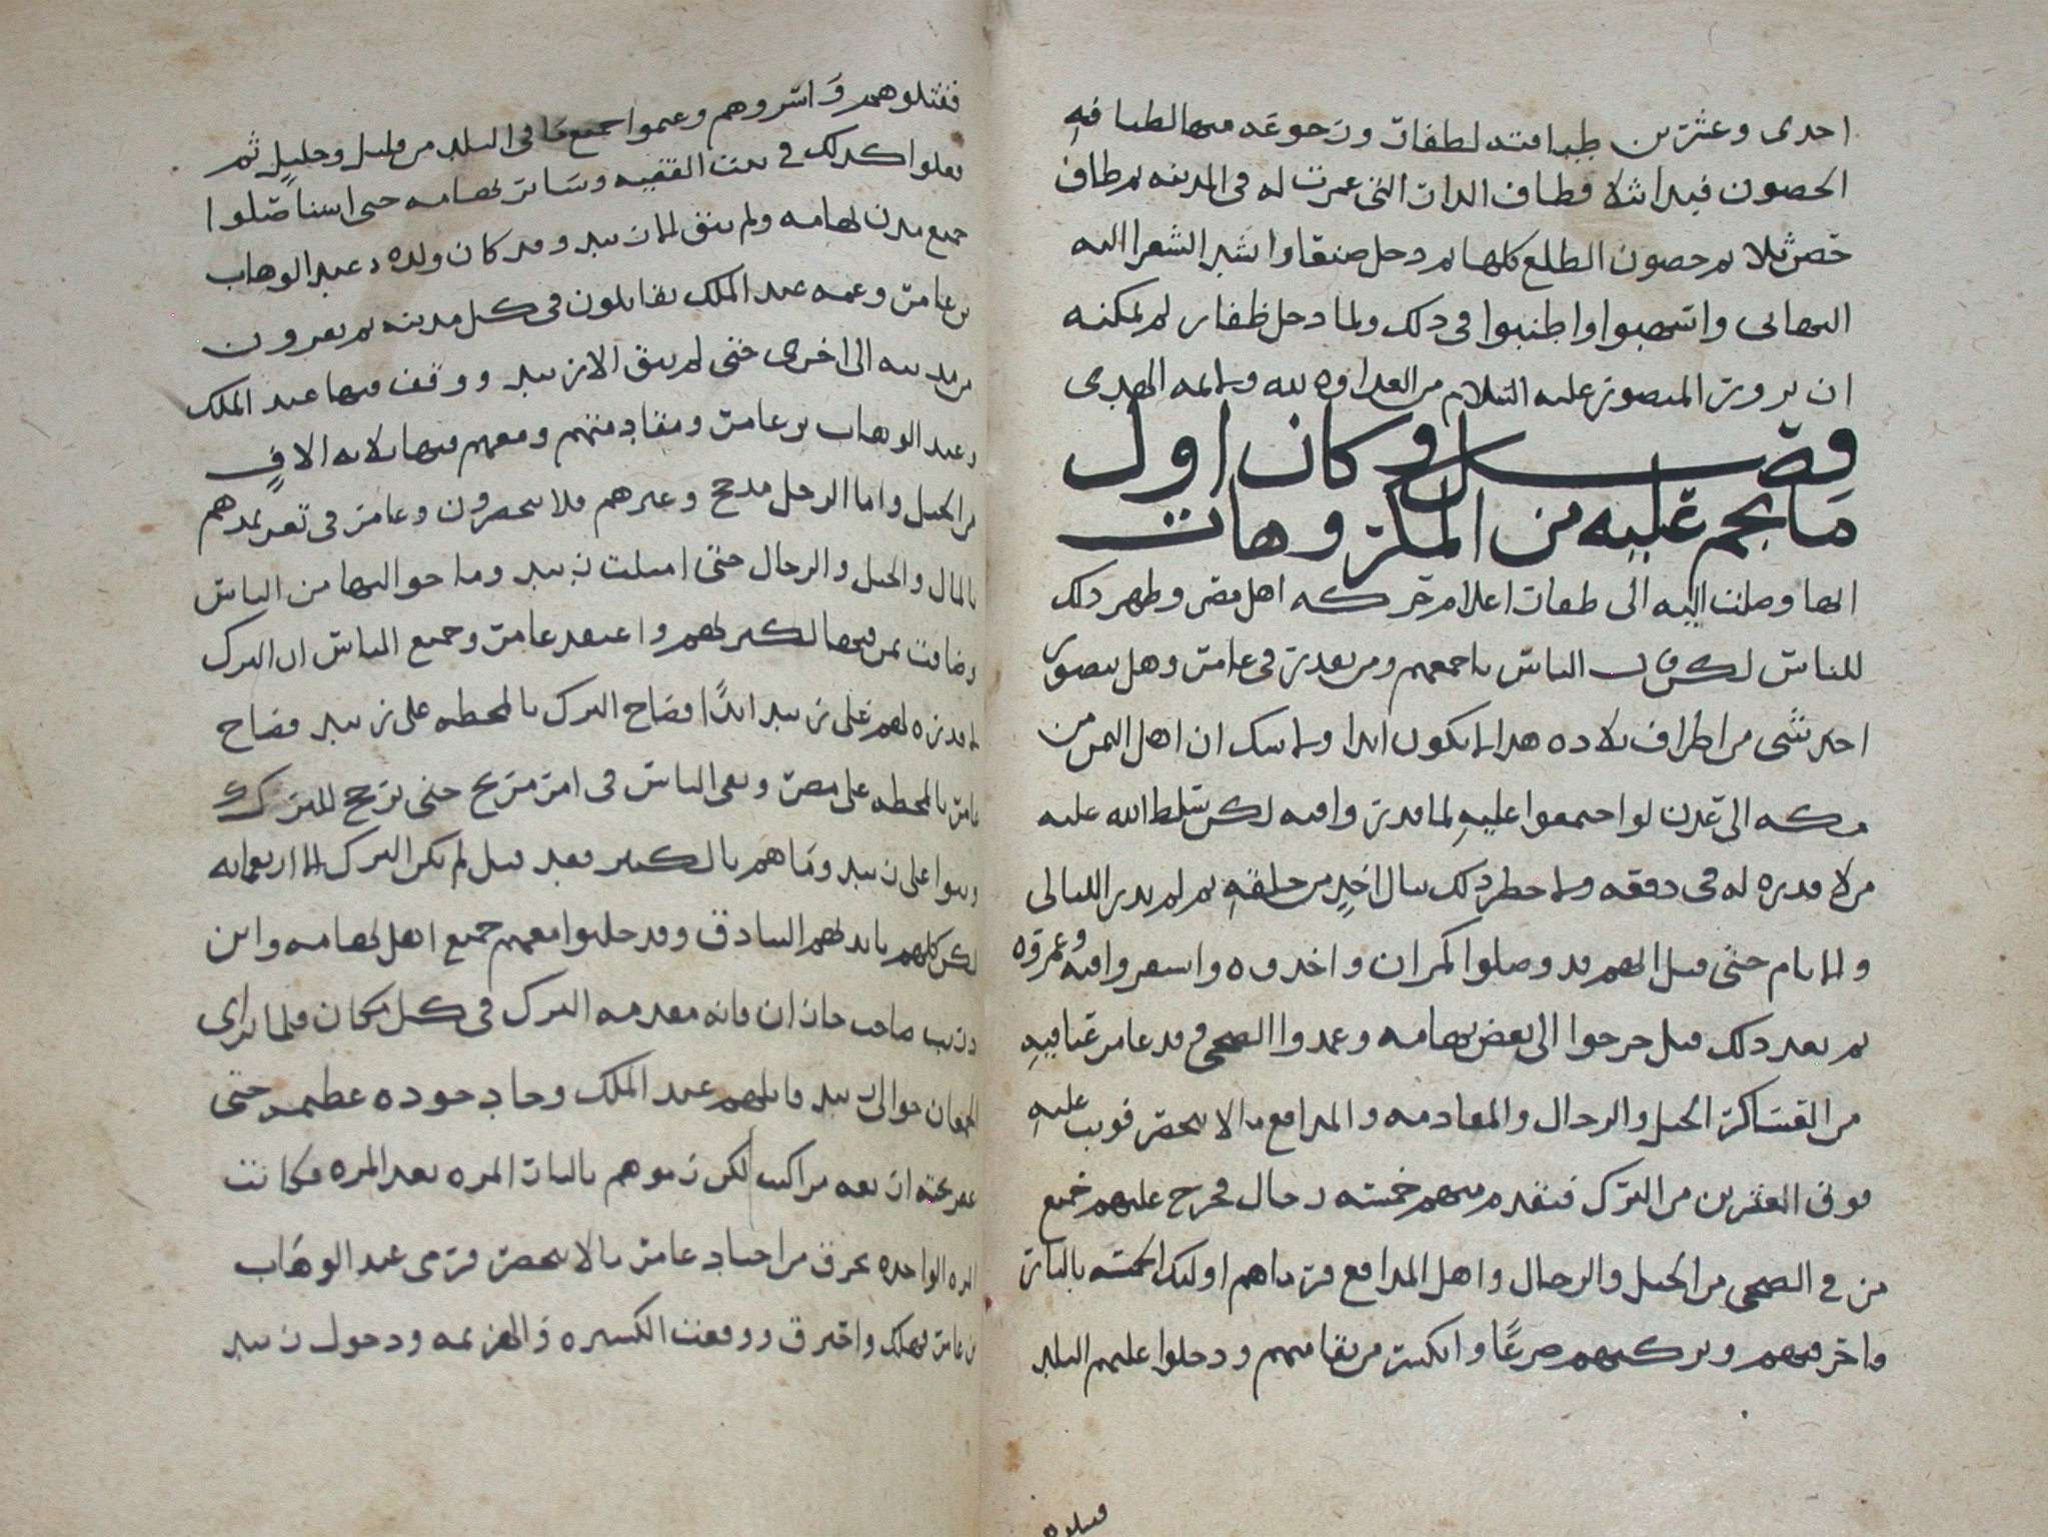 احدى وعشرين طبا فته لظفار ورجوعه منها لطيافه
الحصون فبدا شلا فطاف الدار التي عمرت له في المدينه ثم طاف
حصن ثلا ثم حصون الطلع كلها ثم دخل صنعا وانشد الشعرا اليه
التهاني واسهبوا واطنبوا في ذلك ولما دخل ظفار لم يمكنه
ان يزور المنصور عليه السلام من العداوه لله ولسلمه الهدى
فصل وكان اول
ما نجم عليه من المكروهات
انها وصلت اليه الى ظفار اعلام حركه اهل مصر وظهر ذلك
للناس لكن قال الناس باجمعهم ومن يقدر في عامر وهل يتصور
احد شي من اطراف بلاده هذا لا يكون ابدا ولا شك ان اهل اليمن من
مكه الى عدن لو اجتمعوا عليه لما قدروا فيه لكن سلط الله عليه
من لا قدره له في دفعه ولا خطر ذلك ببال احد من خلقه ثم لم تدر الليالي
والايام حتى قيل انهم قد وصلوا كمران واخذوه واستقروا فيه وعمروه
ثم بعد ذلك قيل خرجوا الى بعض تهامه وعمدوا الضحي وقد عامر عبا فيه
من العساكر الخيل والرجال والمقادمه والمدافع ما لا ينحصر فوثب عليه
فوق العشرين من الترك فتقدم منهم خمسه رجال فخرج عليهم جميع
من في الضحي من الخيل والرجال واهل المدافع فرماهم اولئك الخمسه بالنار
واحرقتهم وتركتهم صرعا وانكسر من بقا منهم ودخلوا عليهم البلد
فقتلوهم
فقتلوهم واسروهم وغنموا جميع ما في البلد من قليل وجليل ثم
فعلوا كذلك في بيت الفقيه وسائر تهامه حتى استاصلوا
جميع مدن تهامه ولم يبق الا زبيد وقد كان ولده عبد الوهاب
بن عامر وعمه عبد الملك يقاتلون في كل مدينه ثم يفرون
من مدينه الى اخرى حتى لم يبق الا زبيد ووقف فيها عبد الملك
وعبد الوهاب بن عامر ومقادمتهم ومعهم فيها ثلاثه الاف
من الخيل واما الرجل مذحج وغيرهم فلا ينحصرون وعامر في تعز يمدهم
بالمال والخيل والرجال حتى امتلت زبيد وما حواليها من الناس
وضاقت بمن فيها لكثرتهم واعتقد عامر وجميع الناس ان الترك
لا قدره لهم على زبيد ابدًا فصاح الترك بالمحطه على زبيد فصاح
عامر بالمحطه على مصر وبقي الناس في امر مريج حتى ترجح للترك
وثبوا على زبيد وما هم بالكثير فقد قيل لم يكن الترك الا اربعمايه
لكن كلهم بايديهم البنادق وقد دخلوا معهم جميع اهل تهامه وابن
دريب صاحب جازان فانه مقدمه الترك في كل مكان فلما تراى
الجمعان حوالي زبيد قاتلهم عبد الملك وجاد جوده عظيمه حتى
عقرت تحته اربعه مراكب لكن رموهم بالنار المره بعد المره فكانت
المره الواحده تحرق من اجناد عامر ما لا ينحصر فرمى عبد الوهاب
بن عامر فهلك واحترق ووقعت الكسيره والهزيمه ودخول زبيد